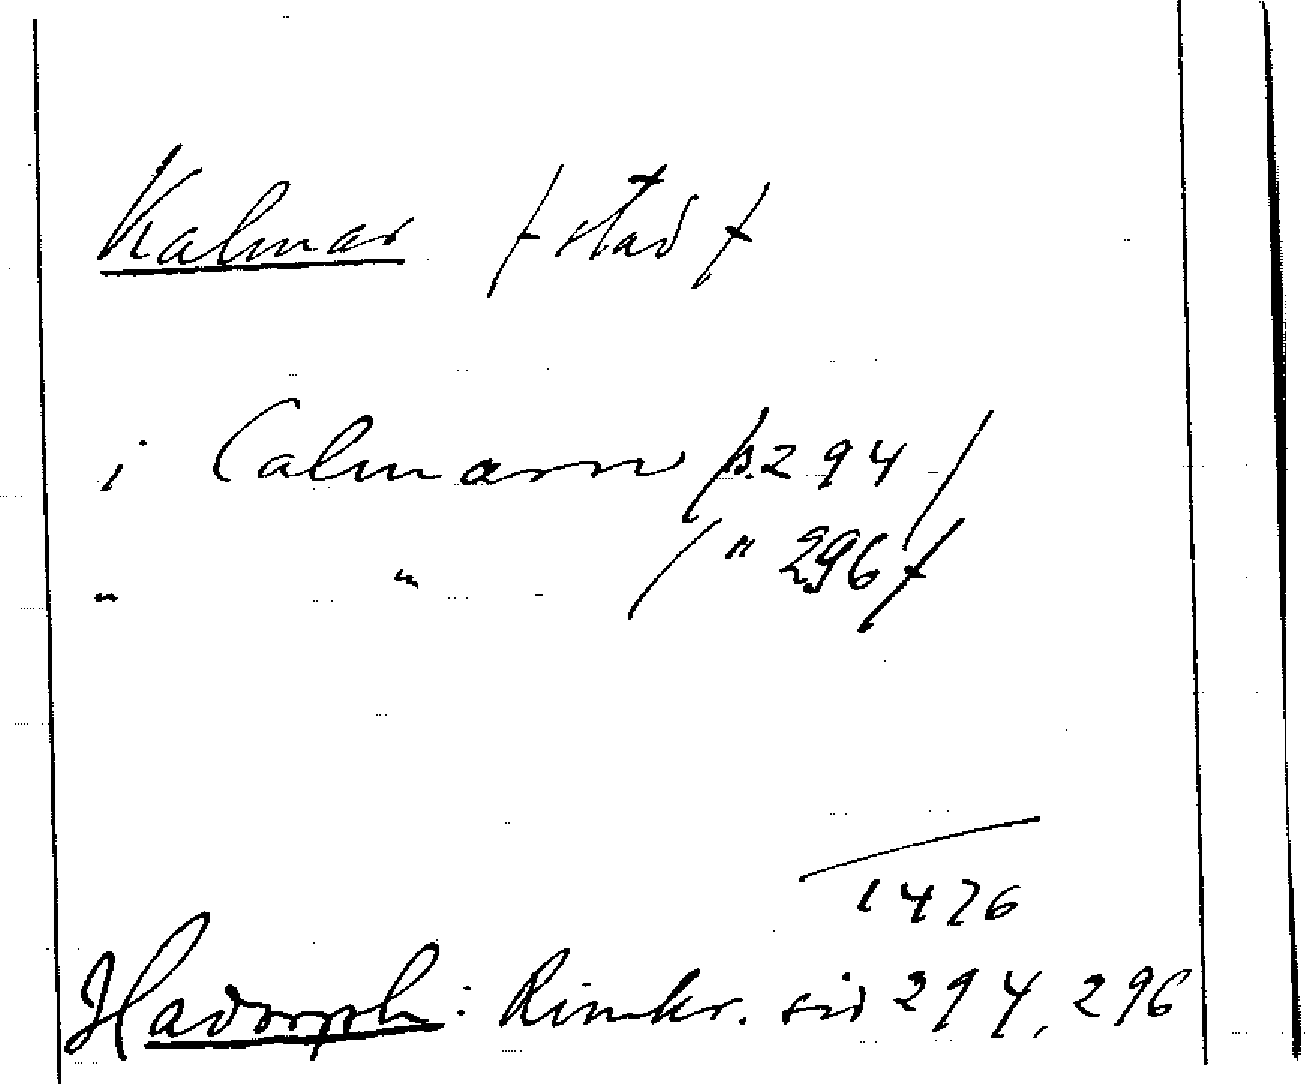 Kalmar /stad/
i Calmarn /s. 294/
" " /" 296/
1476
Hadorph: Rimkr. sid 294, 296